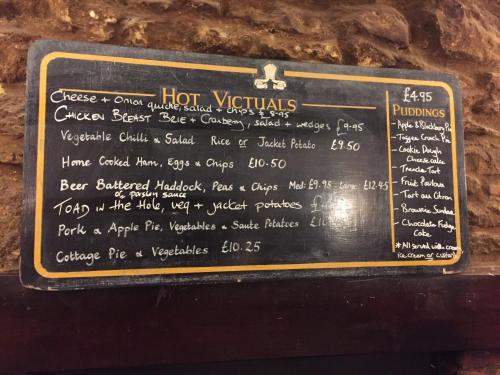 HOT VICTUALS
Cheese + Onion quiche, salad + chips £8-95
CHICKEN BREAST BRIE + Cranberry, salad + wedges £9-95
Vegetable Chilli & Salad Rice or Jacket Potato £9.50
Home Cooked Ham, Eggs & Chips £10.50
Beer Battered Haddock, Peas & Chips Med: £9.95 Large: £12.45
or parsley sauce
TOAD in the Hole, veg + jacket potatoes
Pork & Apple Pie, Vegetables & Saute Potatoes
Cottage Pie & Vegetables £10.25
£4.95
PUDDINGS
- Apple & Blackberry Pie
- Toffee Crunch Pie
- Cookie Dough
Cheesecake
- Treacle Tart
- Fruit Pavlova
- Tart au Citron
- Brownie Sundae
- Chocolate Fudge
Cake
* All served with cream
ice cream or custard